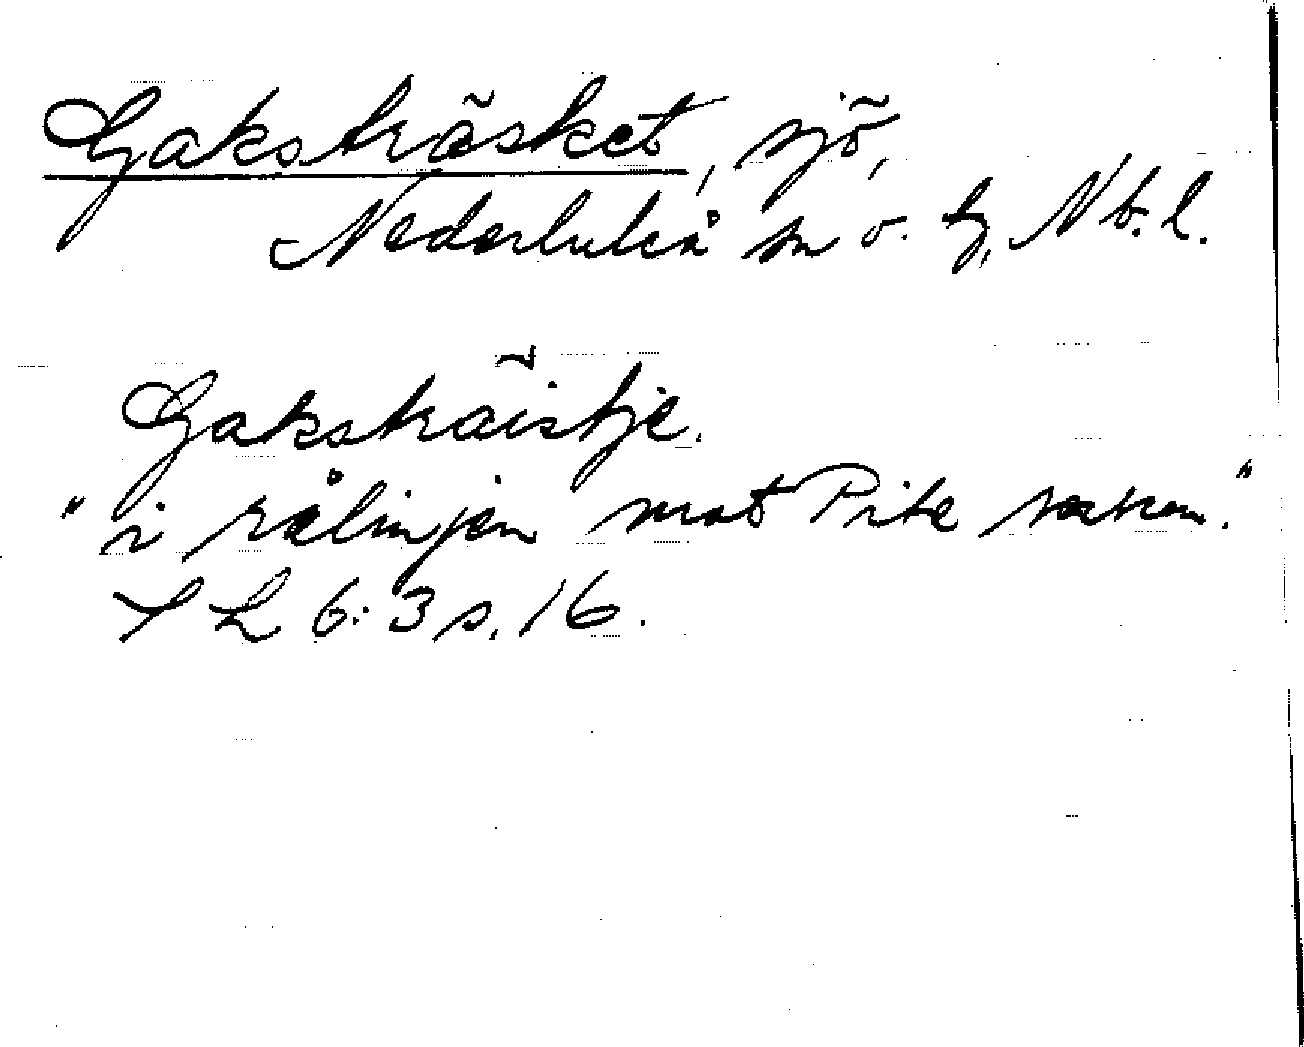 Gaksträsket, sjö,
Nederluleå sn o. tg, Nb. l.
Gaksträistje.
"i rålinjen mot Pite socken."
S L 6:3 s. 16.